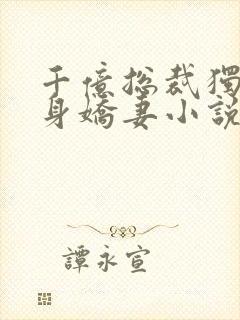 千億總裁獨
身嬌妻小說
譚永宣